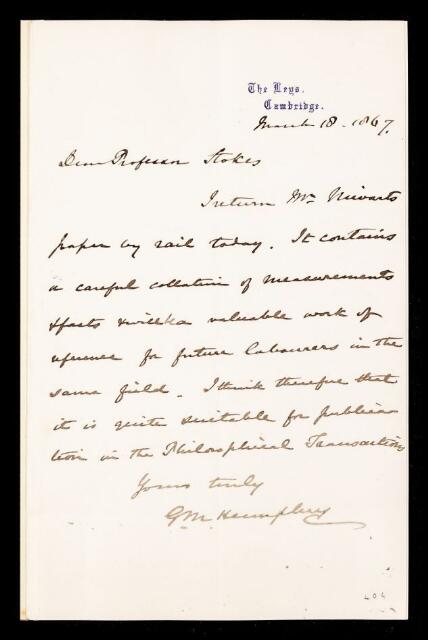 The Leys.
Cambridge.
March 18. 1867.
Dear Professor Stokes
I return Mr Mivarts
paper by rail today. It contains
a careful collation of measurements
& facts & will be a valuable work of
reference for future labourers in the
same field. I think therefore that
it is quite suitable for publica
tion in the Philosophical Transactions
Yours truly
GM Humphry
404